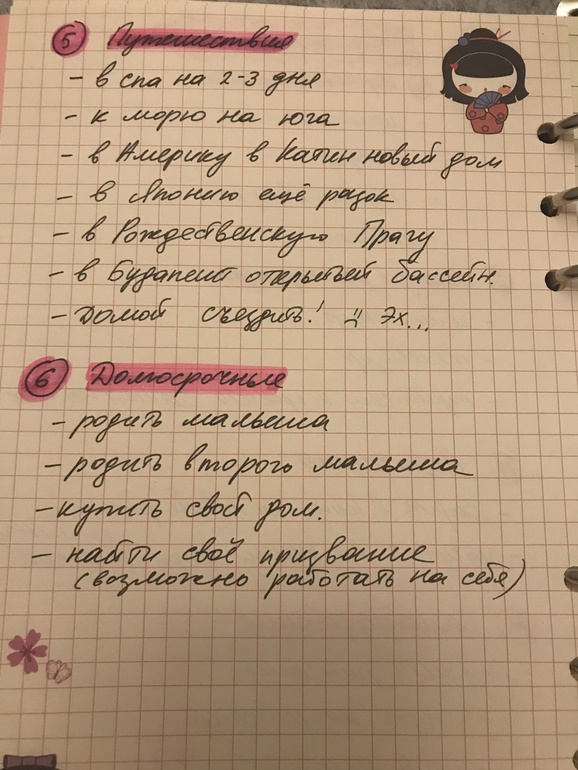 5 Путешествия
- в спа на 2-3 дня
- к морю на юга
- в Америку в Катин новый дом
- в Японию ещё разок
- в Рождественскую Прагу
- в Будапешт открытый бассейн.
- Домой съездить! Эх...
6 Долгосрочные
- родить малыша
- родить второго малыша
- купить свой дом.
- найти своё призвание
(возможно работать на себя)